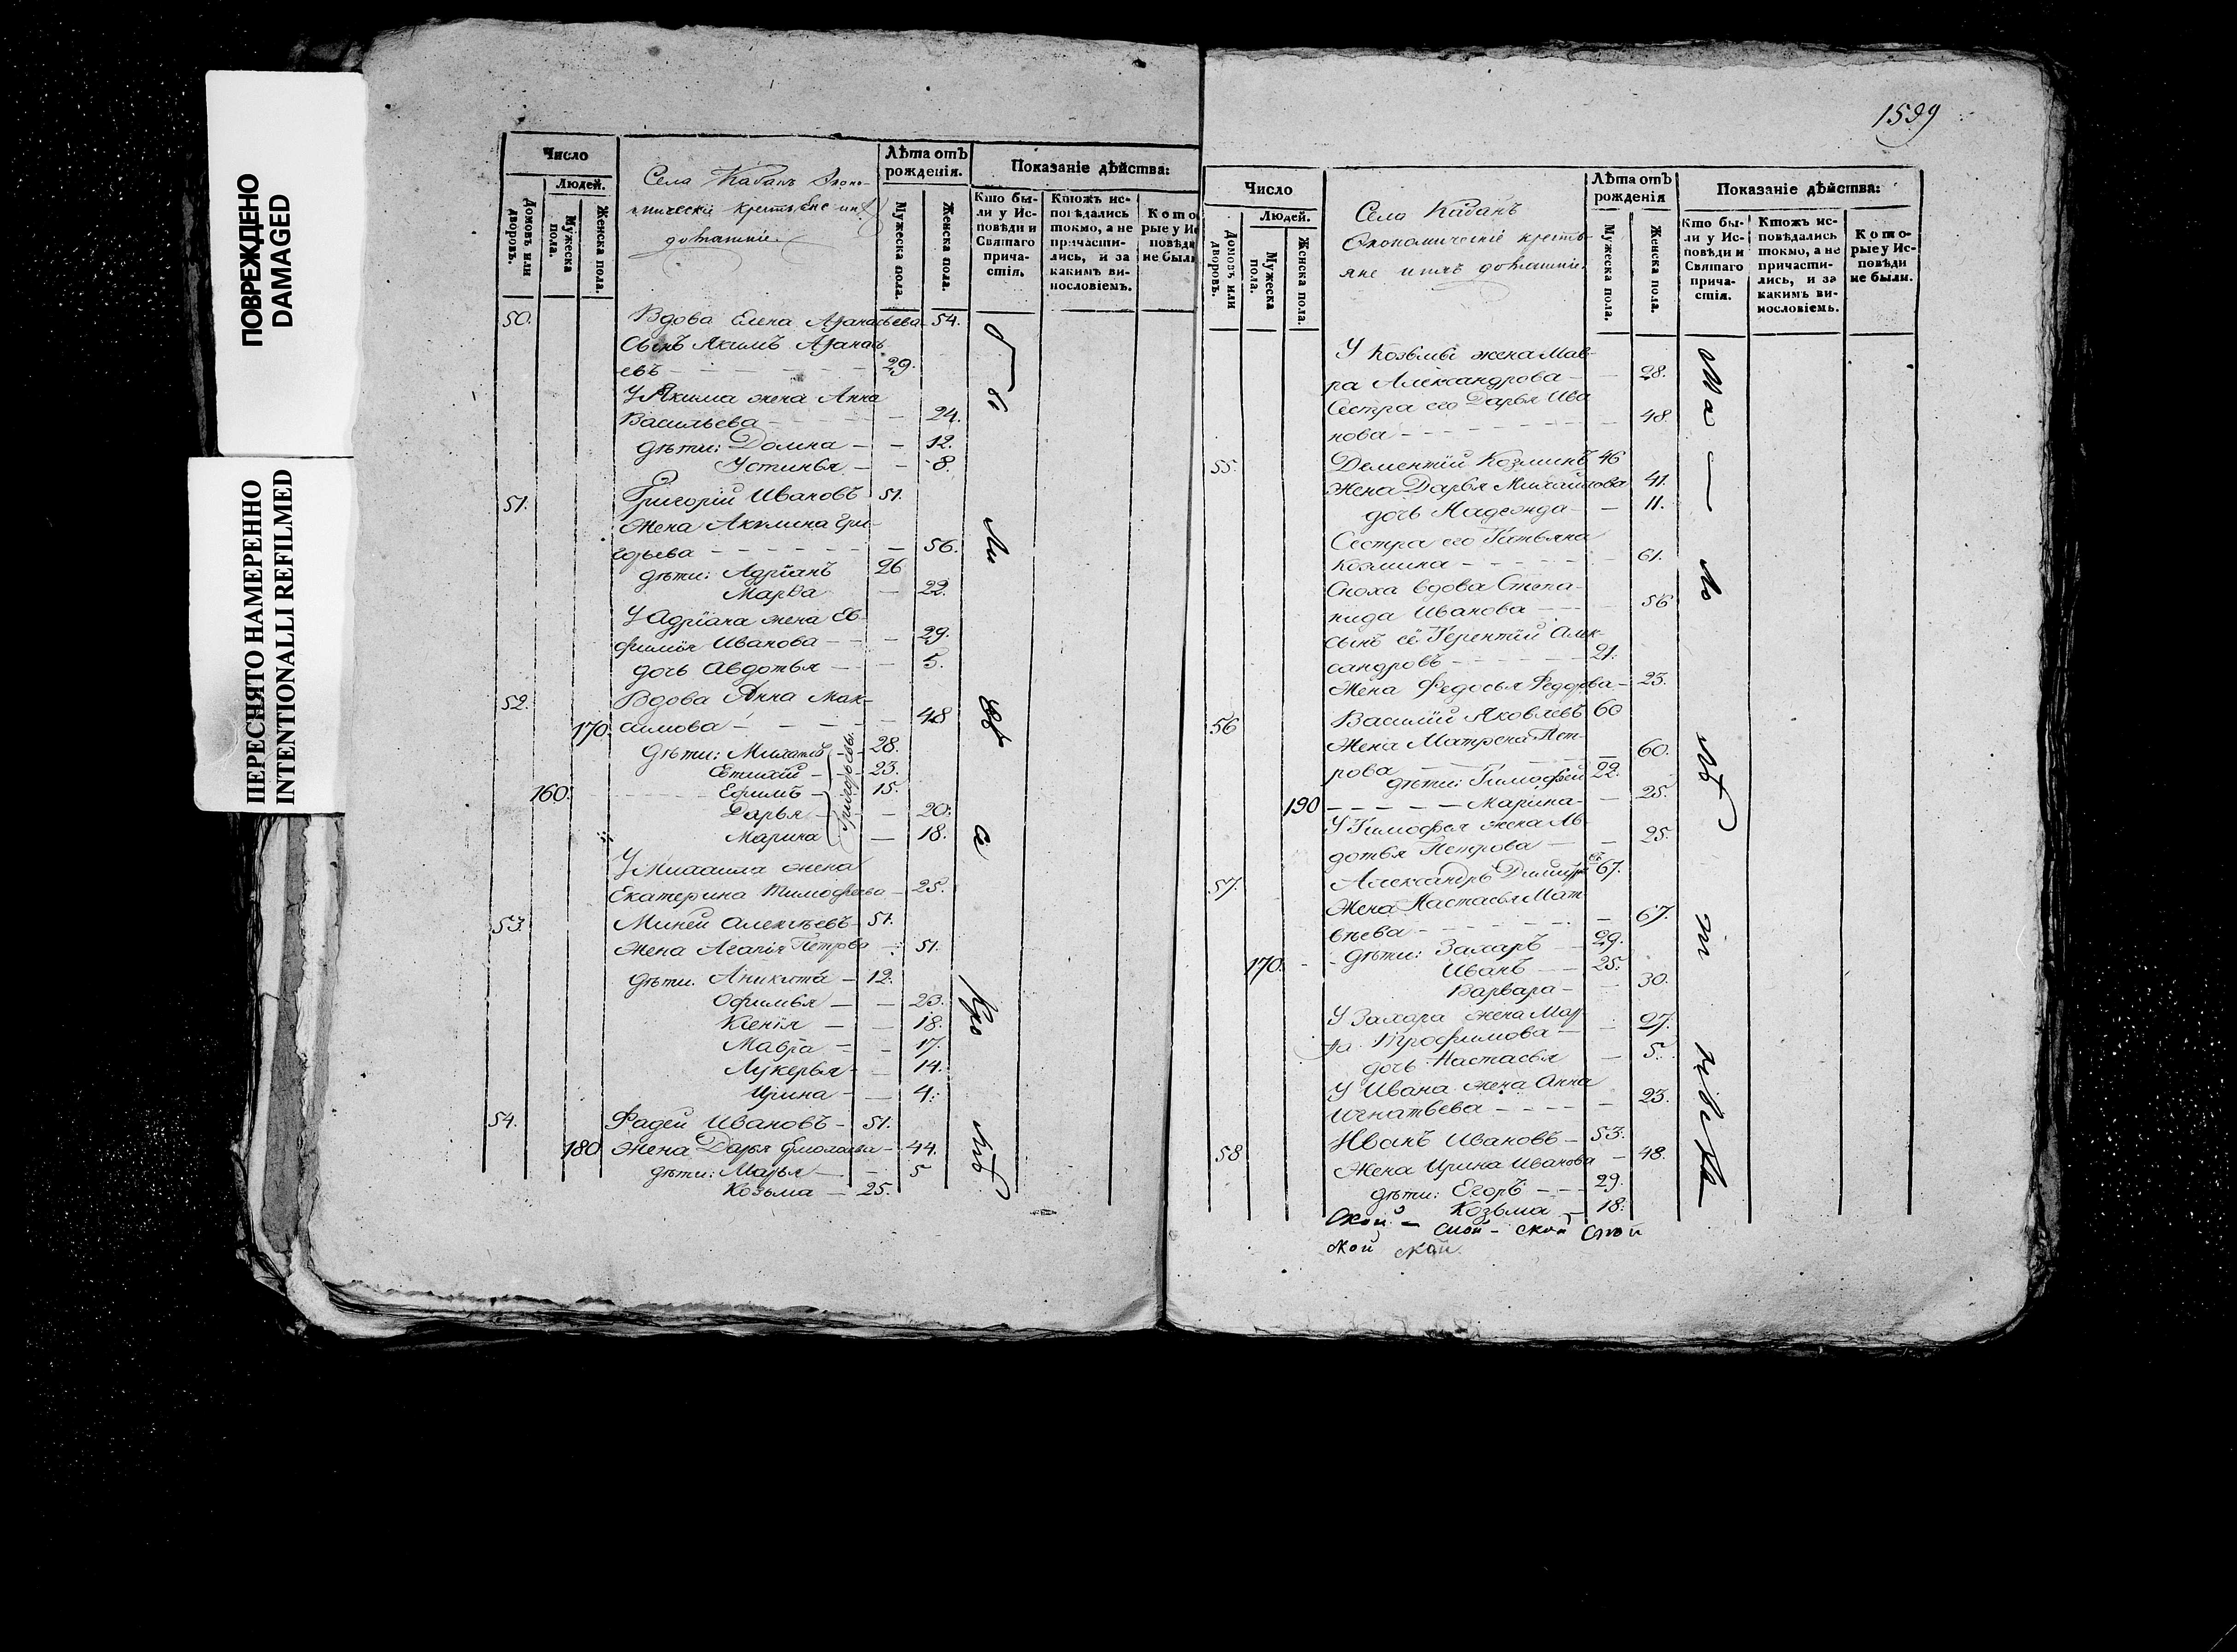 ПОВРЕЖДЕНО
DAMAGED
ПЕРЕСНЯТО НАМЕРЕННО
INTENTIONALLI REFILMED
Число
Людей.
Домовъ или дворовъ.
Мужеска пола.
Женска пола.
Села Кабанъ Эконо-
мическiе крестьяне ихъ
домашнiе.
Лѣта отъ рожденiя.
Мужеска пола.
Женска пола.
Показанiе дѣйства:
Кто бы-
ли у Ис-
повѣди и
Святаго
прича-
стiя.
Ктожъ ис-
повѣдались
токмо, а не
причасти-
лись, и за
какимъ ви-
нословiемъ.
Кото
рые у Ис
повѣди
не были
50. Вдова Елена Афанасьева 54.
Сынъ Якимъ Афанась
евъ 29.
У Якима жена Анна
Васильева 24.
дѣти: Домна 12.
Устинья 8.
51. Григорiй Ивановъ 51.
Жена Акулина Гри-
горьева 56.
дѣти: Адрiанъ 26
Марѳа 22.
У Адрiана жена Ев-
фимiя Иванова 29.
дочь Авдотья 5.
52. Вдова Анна Мак-
170. симова 48
дѣти: Михаилъ 28.
23.
160. Ефимъ 15.
Дарья 20.
Марина 18.
Григорьевы.
У Михаила жена
Екатерина Тимофеева 25.
53. Миней Алексѣевъ 51.
Жена Агапiя Петрова 51.
дѣти. Аникита 12.
Офимья 23.
Ксенiя 18.
Мавра 17.
Лукерья 14.
Ирина 4.
54. Фадей Ивановъ 51.
180 Жена Дарья Ермолаева 44.
дѣти: Марья 5
Козьма 25.
1599
Число
Людей.
Домовъ или дворовъ.
Мужеска пола.
Женска пола.
Село Кабанъ
Экономическiе кресть-
яне ихъ домашнiе.
Лѣта отъ рожденiя
Мужеска пола.
Женска пола.
Показанiе дѣйства:
Кто бы-
ли у Ис-
повѣди и
Святаго
прича-
стiя.
Ктожъ ис-
повѣдались
токмо, а не
причасти-
лись, и за
какимъ ви-
нословiемъ.
Кото-
рые у Ис-
повѣди
не были.
У Козьмы жена Мав-
ра Александрова 28.
Сестра его Дарья Ива
нова 48.
55. Дементiй Козминъ 46
Жена Дарья Михайлова 41.
дочь Надежда 11.
Сестра его Татьяна
Козмина 61.
Сноха вдова Степа-
нида Иванова 56
сынъ её Терентiй Алек-
сандровъ 21.
Жена Федосья Федорова 23.
56 Василiй Яковлевъ 60
Жена Матрена Пет-
рова 60.
дѣти: Тимофей 22.
190 Марина 25.
У Тимофея жена Ав-
дотья Петрова 25.
57. Александръ 67.
Жена Настасья Мат-
вѣева 67.
дѣти: Захаръ 29.
170. Иванъ 25.
Варвара 30.
У Захара жена Мар
ѳа Трофимова 27.
дочь Настасья 5.
У Ивана жена Анна
Игнатьева 23.
58 Иванъ Ивановъ 53.
Жена Ирина Иванова 48.
дѣти: Егоръ 29.
Козьма 18.